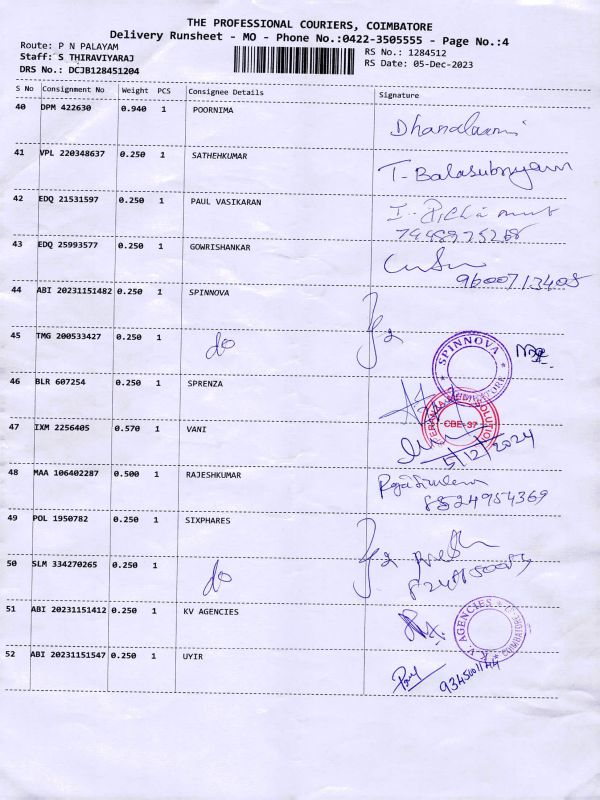 THE PROFESSIONAL COURIERS, COIMBATORE
Delivery Runsheet - MO - Phone No.:0422-3505555 - Page No.:4
Route: P N PALAYAM
Staff: S THIRAVIYARAJ
DRS No.: DCJB128451204
RS No.: 1284512
RS Date: 05-Dec-2023
S No Consignment No Weight PCS Consignee Details Signature
40 DPM 422630 0.940 1 POORNIMA
41 VPL 220348637 0.250 1 SATHEHKUMAR T. Balasubnyam
42 EDQ 21531597 0.250 1 PAUL VASIKARAN
43 EDQ 25993577 0.250 1 GOWRISHANKAR
9600713408
44 ABI 20231151482 0.250 1 SPINNOVA
45 TMG 200533427 0.250 1 do
SPINNOVA
46 BLR 607254 0.250 1 SPRENZA
CBE-37
47 IXM 2256405 0.570 1 VANI
5/12/2024
48 MAA 106402287 0.500 1 RAJESHKUMAR
8524954369
49 POL 1950782 0.250 1 SIXPHARES
50 SLM 334270265 0.250 1 do
51 ABI 20231151412 0.250 1 KV AGENCIES
K.V AGENCIES
52 ABI 20231151547 0.250 1 UYIR